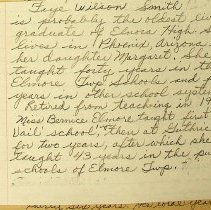 Faye Wilson Smith
is probably the oldest liv
graduate of Elnora High S
lives in Phoenix, Arizona
her daughter Margaret. She
taught forty years in th
Elmore Twp. Schools and f
years in other school system
Retired from teaching in 19
Miss Bernice Elmore taught first
Vail school, then at Guthrie
for two years, after which she
taught 43 years in the pu
schools of Elmore Twp.